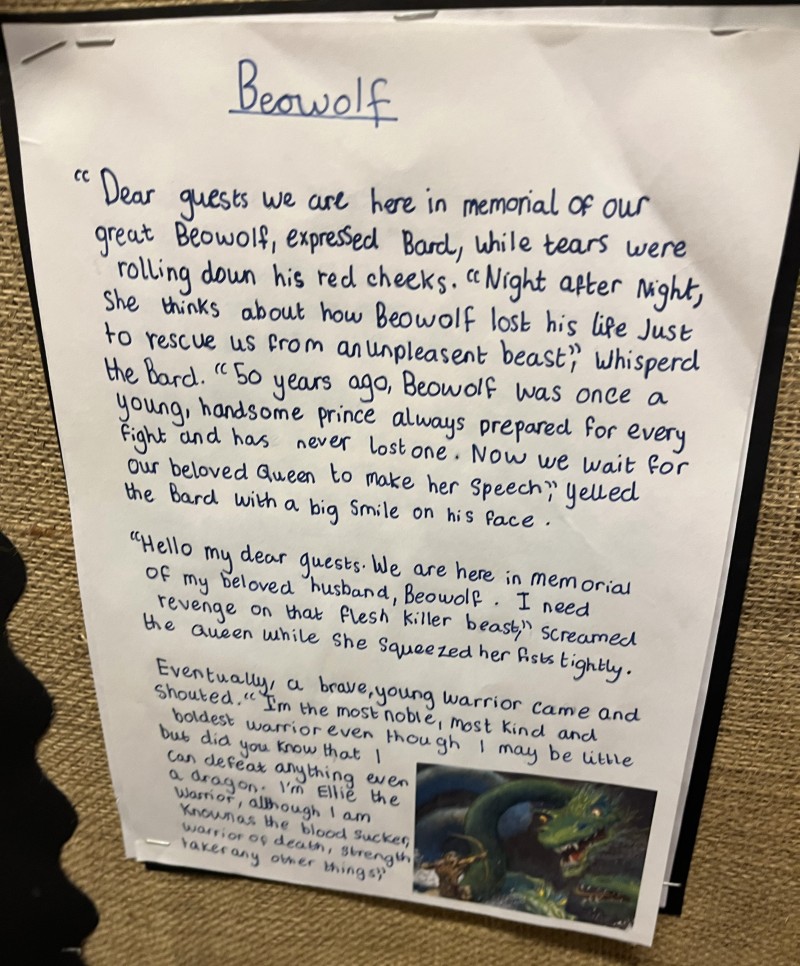 Beowolf
“Dear guests we are here in memorial of our
great Beowolf, expressed Bard, while tears were
rolling down his red cheeks. “Night after Night,
She thinks about how Beowolf lost his life Just
to rescue us from an unpleasent beast”, whisperd
the Bard. “50 years ago, Beowolf was once a
young, handsome prince always prepared for every
fight and has never lost one. Now we wait for
our beloved Queen to make her Speech”, yelled
the Bard with a big smile on his face.
“Hello my dear guests. We are here in memorial
of my beloved husband, Beowolf. I need
revenge on that flesh killer beast,” screamed
the Queen while she squeezed her fists tightly.
Eventually, a brave, young warrior came and
Shouted. “I'm the most noble, most kind and
boldest warrior even though I may be little
but did you know that I
can defeat anything even
a dragon. I'm Ellie the
Warrior, although I am
Known as the blood sucker,
warrior of death, strength
taker any other things,”